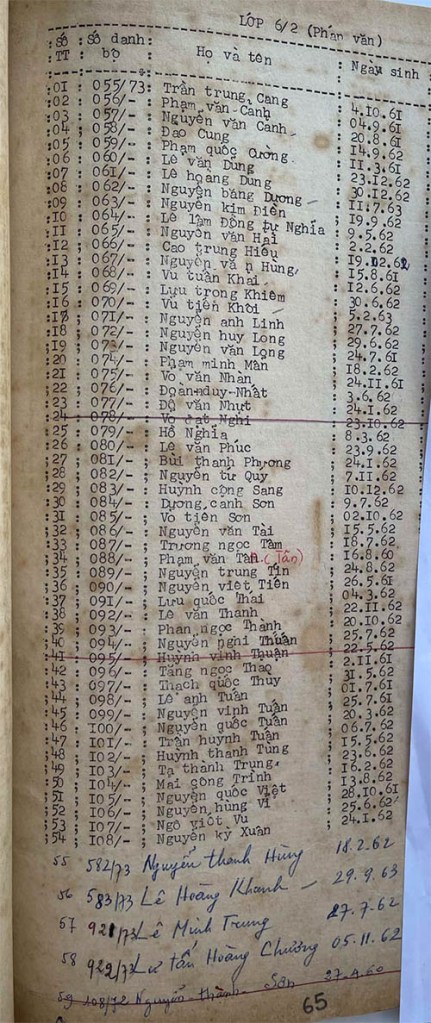 LỚP 6/2 (Pháp văn)
Số TT : Số danh bộ : Họ và tên : Ngày sinh
:01 : 055/73: Trần trung Cang : 4.10.61
:02 : 056/- : Phạm văn Canh : 04.9.61
:03 : 057/- : Nguyễn văn Canh : 20.8.61
:04 : 058/- : Đao Cung : 14.9.62
:05 : 059/- : Phạm quốc Cường : 11.3.61
:06 : 060/- : Lê văn Dũng : 23.12.62
:07 : 061/- : Lê hoàng Dung : 30.12.62
:08 : 062/- : Nguyễn bằng Dương : 11.7.63
:09 : 063/- : Nguyễn kim Điền : 19.9.62
:10 : 064/- : Lê lâm Đồng tự Nghĩa : 9.5.62
:11 : 065/- : Nguyễn văn Hai : 2.2.62
:12 : 066/- : Cao trung Hiếu : 19.02.62
:13 : 067/- : Nguyễn văn Hùng : 15.8.61
:14 : 068/- : Vu tuấn Khai : 12.6.62
:15 : 069/- : Lưu trong Khiêm : 30.6.62
:16 : 070/- : Vu tiến Khôi : 5.2.63
:17 : 071/- : Nguyễn anh Linh : 27.7.62
:18 : 072/- : Nguyễn huy Long : 29.6.62
:19 : 073/- : Nguyễn văn Long : 24.7.61
:20 : 074/- : Phạm minh Mẫn : 18.2.62
:21 : 075/- : Vo văn Nhân : 24.11.61
:22 : 076/- : Đoan-duy-Nhất : 3.6.62
:23 : 077/- : Đỗ văn Nhựt : 24.1.62
:24 : 078/- : Vo đạt Nghi : 23.10.62
:25 : 079/- : Hồ Nghĩa : 8.3.62
:26 : 080/- : Lê văn Phúc : 23.9.62
:27 : 081/- : Bùi thanh Phương : 24.1.62
:28 : 082/- : Nguyễn tư Quý : 7.11.62
:29 : 083/- : Huỳnh công Sang : 10.12.62
:30 : 084/- : Dương canh Sơn : 9.7.62
:31 : 085/- : Vo tiến Sơn : 02.10.62
:32 : 086/- : Nguyễn văn Tài : 15.5.62
:33 : 087/- : Trương ngọc Tâm : 18.7.62
:34 : 088/- : Phạm văn Tân (Tân) : 16.8.60
:35 : 089/- : Nguyễn trung Tín : 24.8.62
:36 : 090/- : Nguyễn việt Tiến : 26.5.61
:37 : 091/- : Lưu quốc Thái : 04.3.62
:38 : 092/- : Lê văn Thanh : 22.11.62
:39 : 093/- : Phan ngọc Thành : 20.10.62
:40 : 094/- : Nguyễn nghi Thuận : 25.7.62
:41 : 095/- : Huỳnh vinh Thuận : 22.5.62
:42 : 096/- : Tăng ngọc Thao : 2.11.61
:43 : 097/- : Thạch quốc Thuy : 31.5.62
:44 : 098/- : Lê anh Tuấn : 01.7.61
:45 : 099/- : Nguyễn vinh Tuấn : 25.7.61
:46 : 100/- : Nguyễn quốc Tuấn : 20.3.62
:47 : 101/- : Trần huỳnh Tuấn : 06.7.62
:48 : 102/- : Huỳnh thanh Tùng : 15.5.62
:49 : 103/- : Tạ thành Trung : 23.6.62
:50 : 104/- : Mai công Trinh : 16.2.62
:51 : 105/- : Nguyễn quốc Việt : 13.8.62
:52 : 106/- : Nguyễn hùng Vi : 28.10.61
:53 : 107/- : Ngô viết Vu : 25.6.62
:54 : 108/- : Nguyễn kỳ Xuân : 24.1.62
55 582/73 Nguyễn thanh Hùng 18.2.62
56 583/73 Lê Hoàng Khanh - 29.9.63
57 921/73 Lê Minh Trung 27.7.62
58 922/73 Lư tấn Hoàng Chương 05.11.62
59 108/72 Nguyễn-thành-Sơn 27.4.60
65